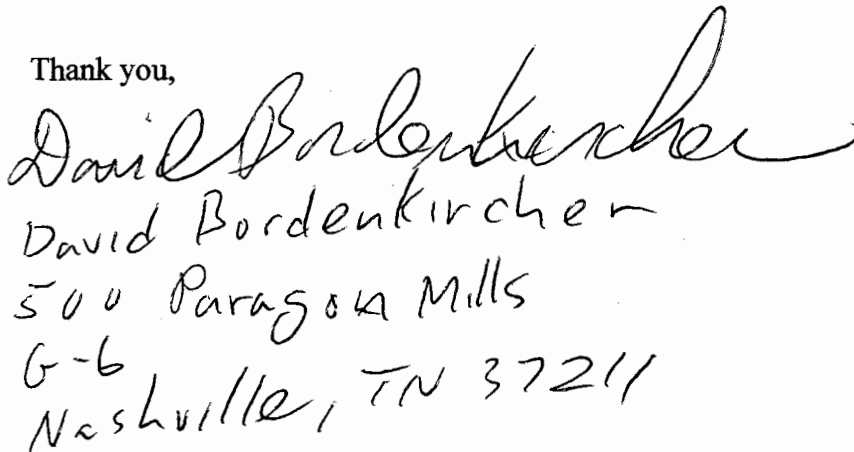 Thank you,
David Bordenkircher
David Bordenkircher
500 Paragon Mills
G-6
Nashville, TN 37211